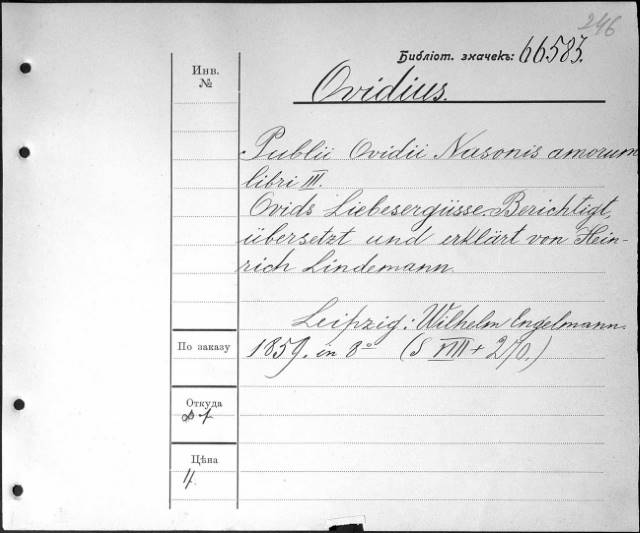 246
Библіот. значекъ: 66583.
Инв.
№
Ovidius.
Publii Ovidii Nasonis amorum
libri III.
Ovids Liebesergüsse. Berichtigt,
übersetzt und erklärt von Hein-
rich Lindemann.
Leipzig: Wilhelm Engelmann.
1859. in 8° (S VIII + 270.)
По заказу
Откуда
Цѣна